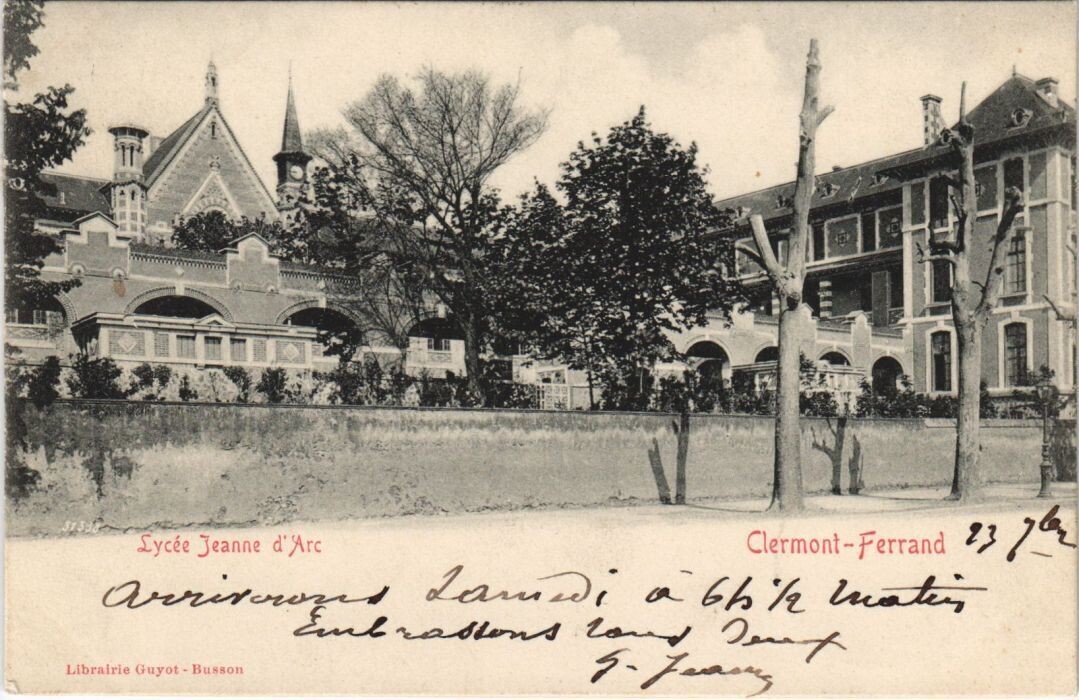 Lycée Jeanne d'Arc
Clermont-Ferrand
23 7bre
Arriverons Samedi à 6h ½ Matin
Embrassons tous deux
Librairie Guyot - Busson